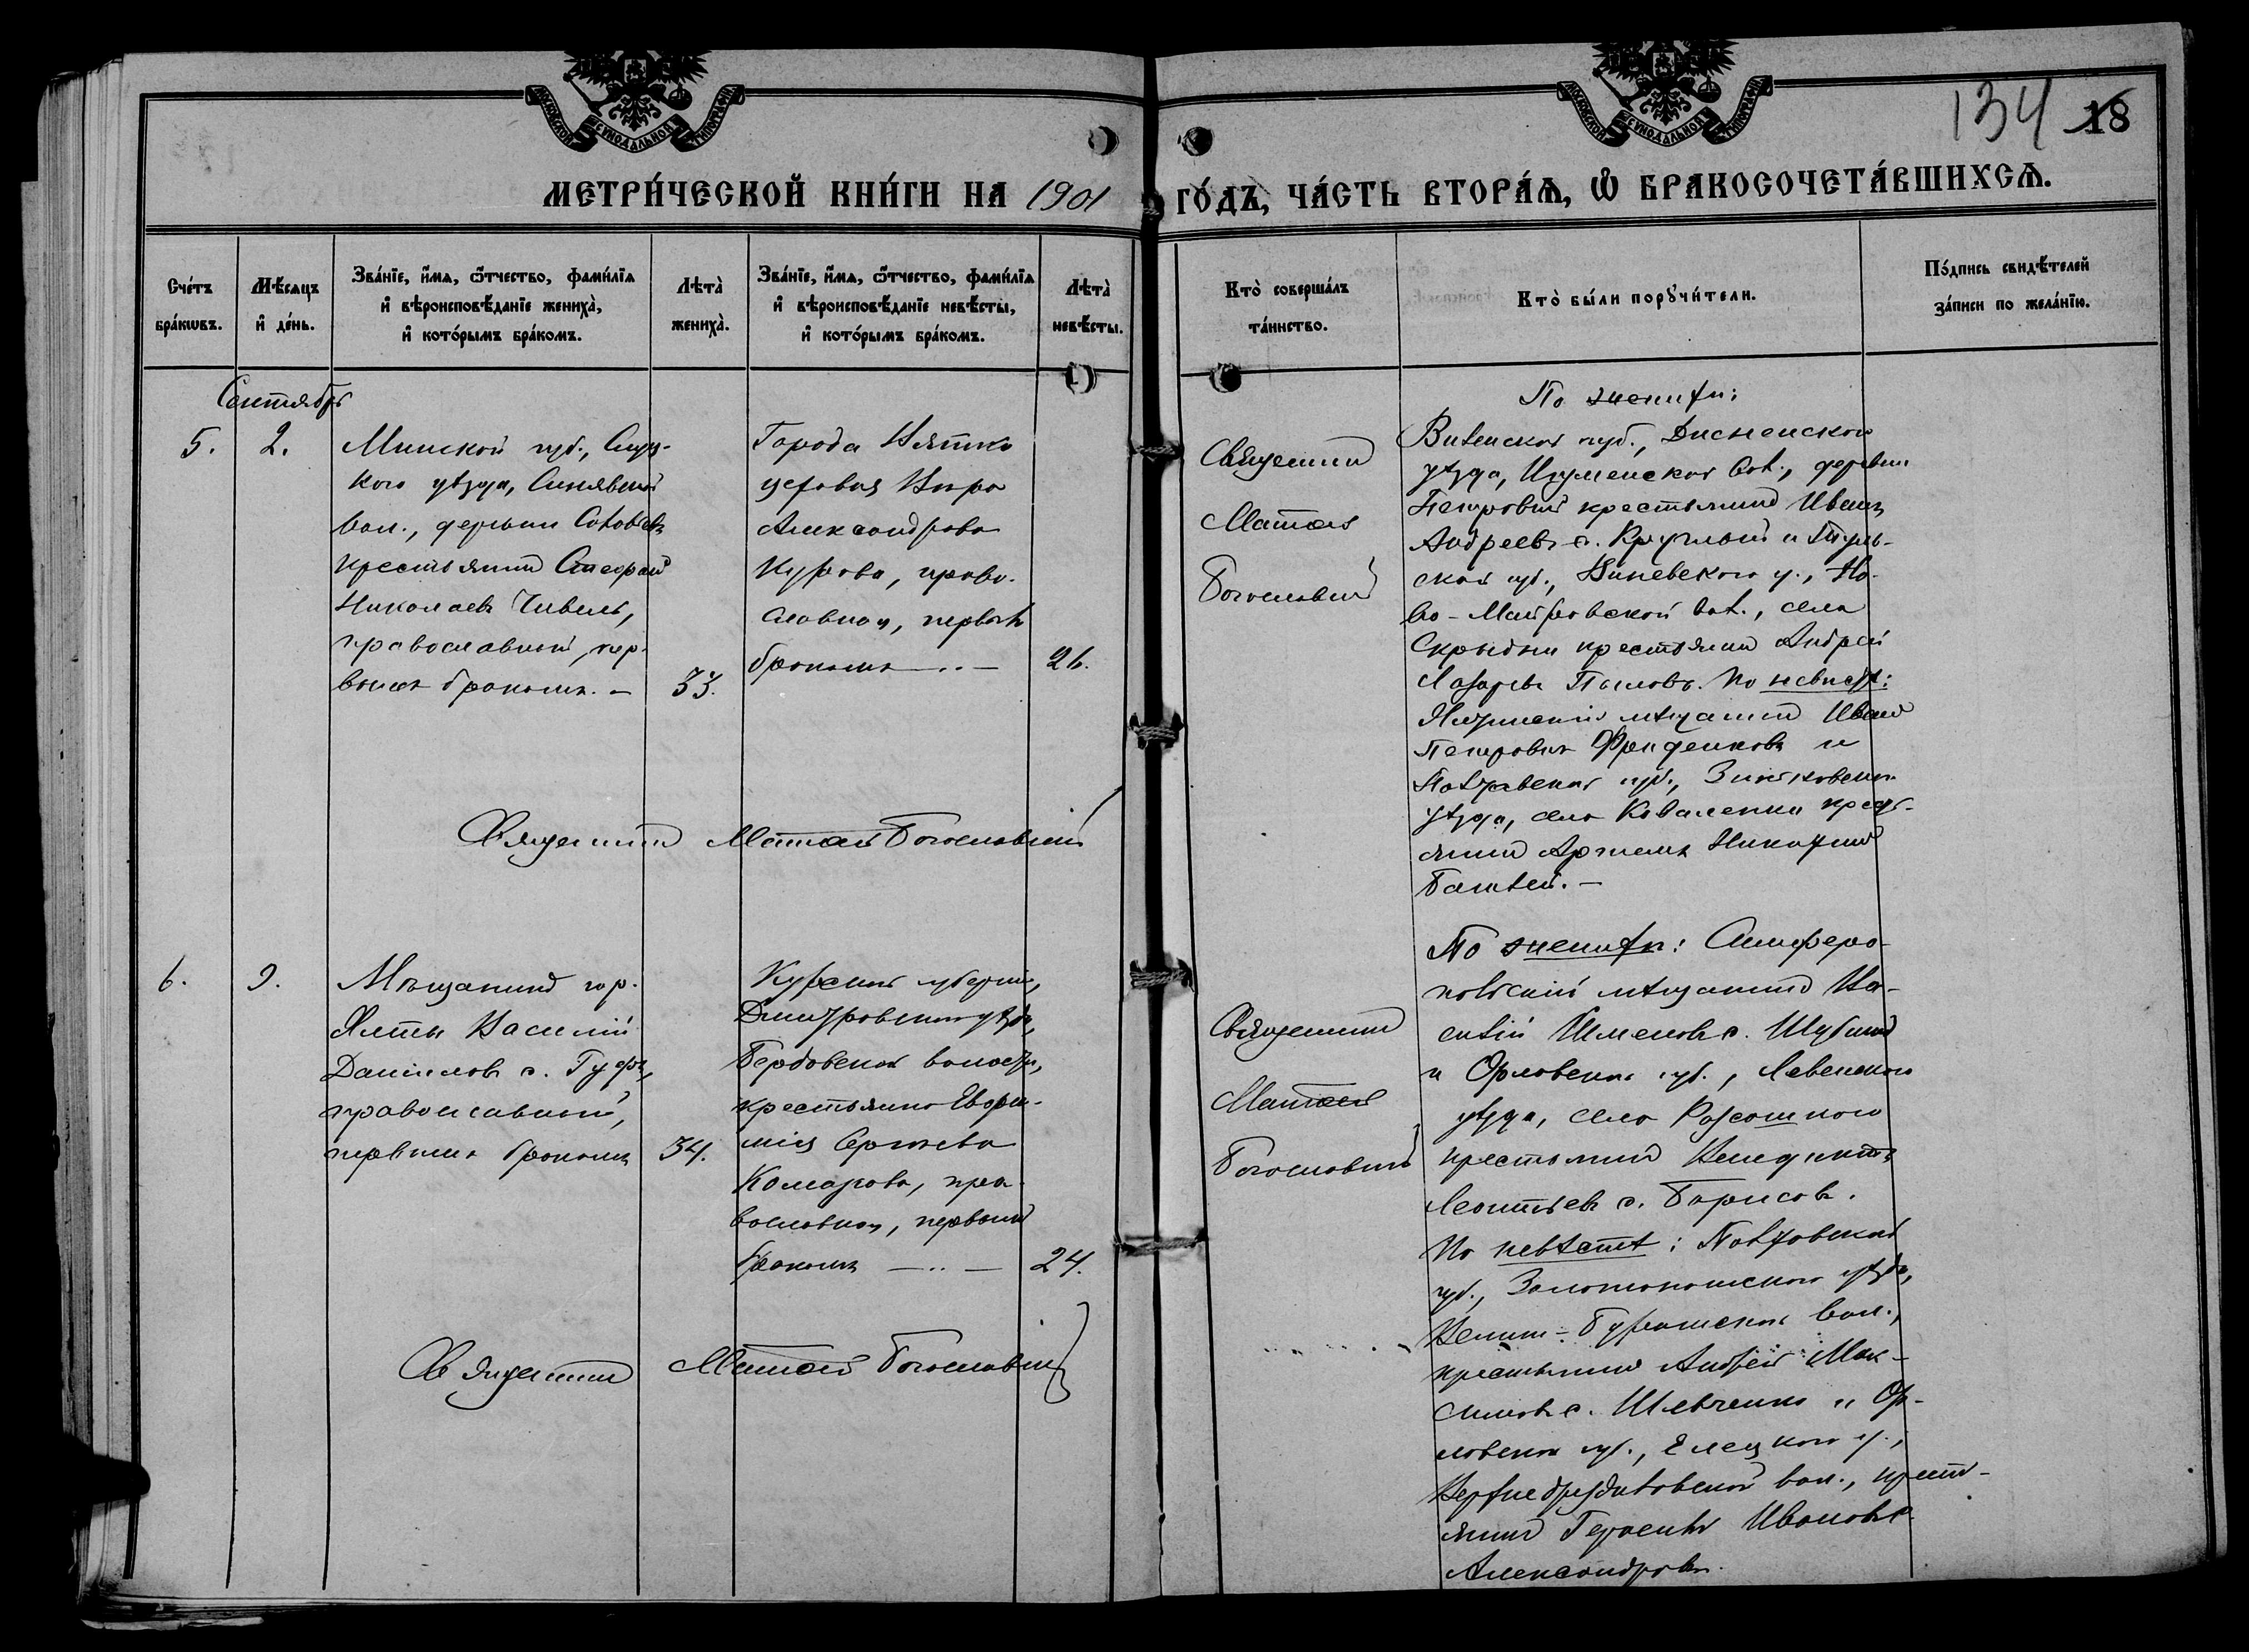 134 18
МЕТРИ́ЧЕСКОЙ КНИ́ГИ НА 1901 ГО́ДЪ, ЧА́СТЬ ВТОРА́Ѧ, Ѿ БРАКОСОЧЕТА́ВШИХСѦ.
Сче́тъ бра́кѡвъ.
Мѣ́сѧцъ и҆ де́нь.
Зва́нїе, и҆́мѧ, ѻ҆́тчество, фами́лїѧ и҆ вѣроисповѣ́данїе жениха̀, и҆ кото́рымъ бра́комъ.
Лѣта̀ жениха̀.
Зва́нїе, и҆́мѧ, ѻ҆́тчество, фами́лїѧ и҆ вѣроисповѣ́данїе невѣ́сты, и҆ кото́рымъ бра́комъ.
Лѣта̀ невѣ́сты.
Кто̀ соверша́лъ та́инство.
Кто̀ бы́ли порꙋчи́тели.
По́дпись свидѣ́телей за́писи по жела́нїю.
Сентябрь
5.
2.
Минской губ., Слуц-
кого уѣзда,
вол., деревни
крестьянинъ
Николаевъ Чивель,
православный, пер-
вымъ бракомъ. —
33.
Города Вятка
цеховая Вѣра
Александрова
Курова, право-
славная, первымъ
бракомъ —..—
26.
Священникъ
Матѳей
Богословскій
По жениху:
Виленской губ., Дисненскаго
уѣзда, вол., деревни
крестьянинъ Иванъ
Андреевъ с. Круглый и
губ., у., Но-
во- вол., села
крестьянинъ Андрей
Лазаревъ По невѣстѣ:
Ялтинскій мѣщанинъ Иванъ
Петровичъ и
Полтавской губ., Зиньковскаго
уѣзда, села Коваленки крест-
янинъ Артемъ

Священникъ Матѳей Богословскій
6.
9.
Мѣщанинъ гор.
Ялты Василій
Даниловъ с.
православный,
первымъ бракомъ
34.
Курской губерніи,
Дмитровскаго уѣзда,
волости,
крестьянка Евфи-
мія Сергѣева
Комарова, пра-
вославная, первымъ
бракомъ —..—
24.
Священникъ
Матѳей
Богословскій
По жениху: Симферо-
польскій мѣщанинъ Ва-
силій с. Шубинъ
и Орловской губ., Ливенскаго
уѣзда, села
крестьянинъ Венедиктъ
Леонтьевъ с. Борисовъ.
По невѣстѣ: Полтавской
губ., Золотоношскаго уѣзда,
Велико-Буромской вол.,
крестьянинъ Андрей Мак-
симовъ с. Шевченко и Ор-
ловской губ., Елецкаго у.,
вол., кресть-
янинъ Герасимъ Ивановъ с.
Александровъ.
Священникъ Матѳей Богословскій